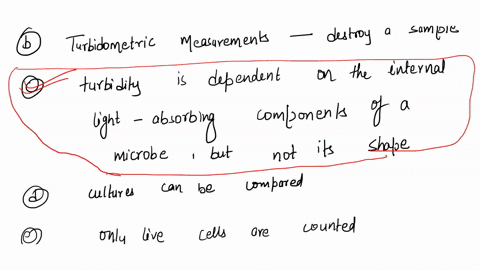 (b) Turbidometric measurements — destroy a sample
(c) turbidity is dependent on the internal
light - absorbing components of a
microbe, but not its shape
(d) cultures can be compared
(e) only live cells are counted